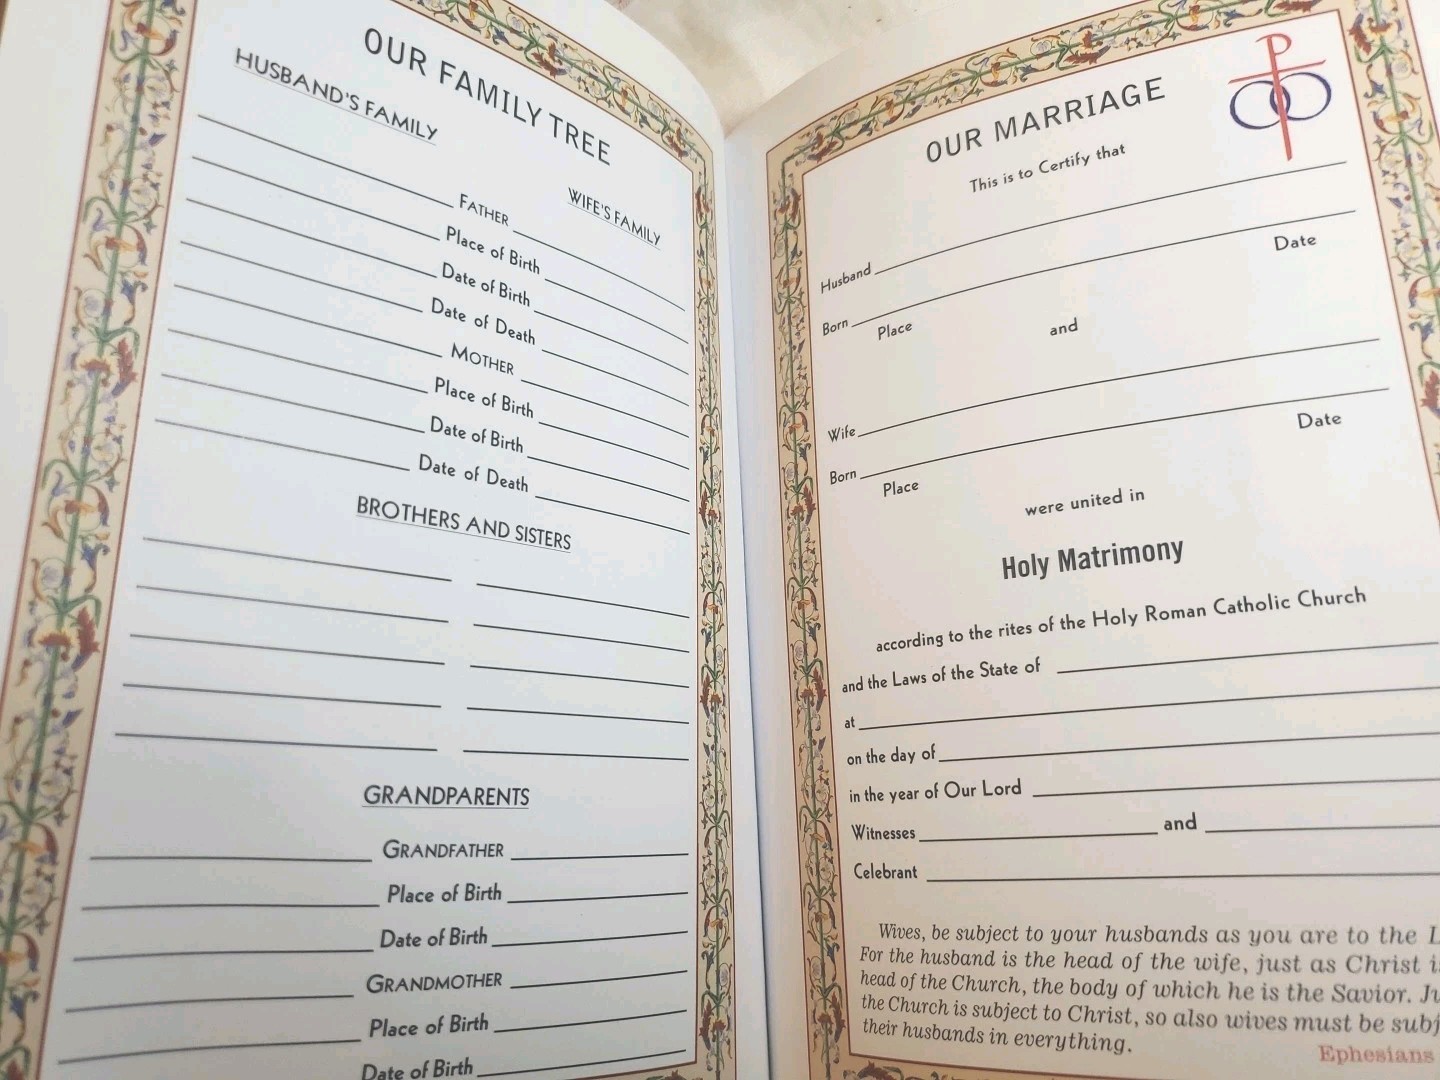 OUR FAMILY TREE
HUSBAND'S FAMILY
WIFE'S FAMILY
FATHER
Place of Birth
Date of Birth
Date of Death
MOTHER
Place of Birth
Date of Birth
Date of Death
BROTHERS AND SISTERS
GRANDPARENTS
GRANDFATHER
Place of Birth
Date of Birth
GRANDMOTHER
Place of Birth
Date of Birth
OUR MARRIAGE
This is to Certify that
Husband
Born
Place
Date
and
Wife
Born
Place
Date
were united in
Holy Matrimony
according to the rites of the Holy Roman Catholic Church
and the Laws of the State of
at
on the day of
in the year of Our Lord
Witnesses and
Celebrant
Wives, be subject to your husbands as you are to the
For the husband is the head of the wife, just as Christ
head of the Church, the body of which he is the Savior.
the Church is subject to Christ, so also wives must be
their husbands in everything.
Ephesians